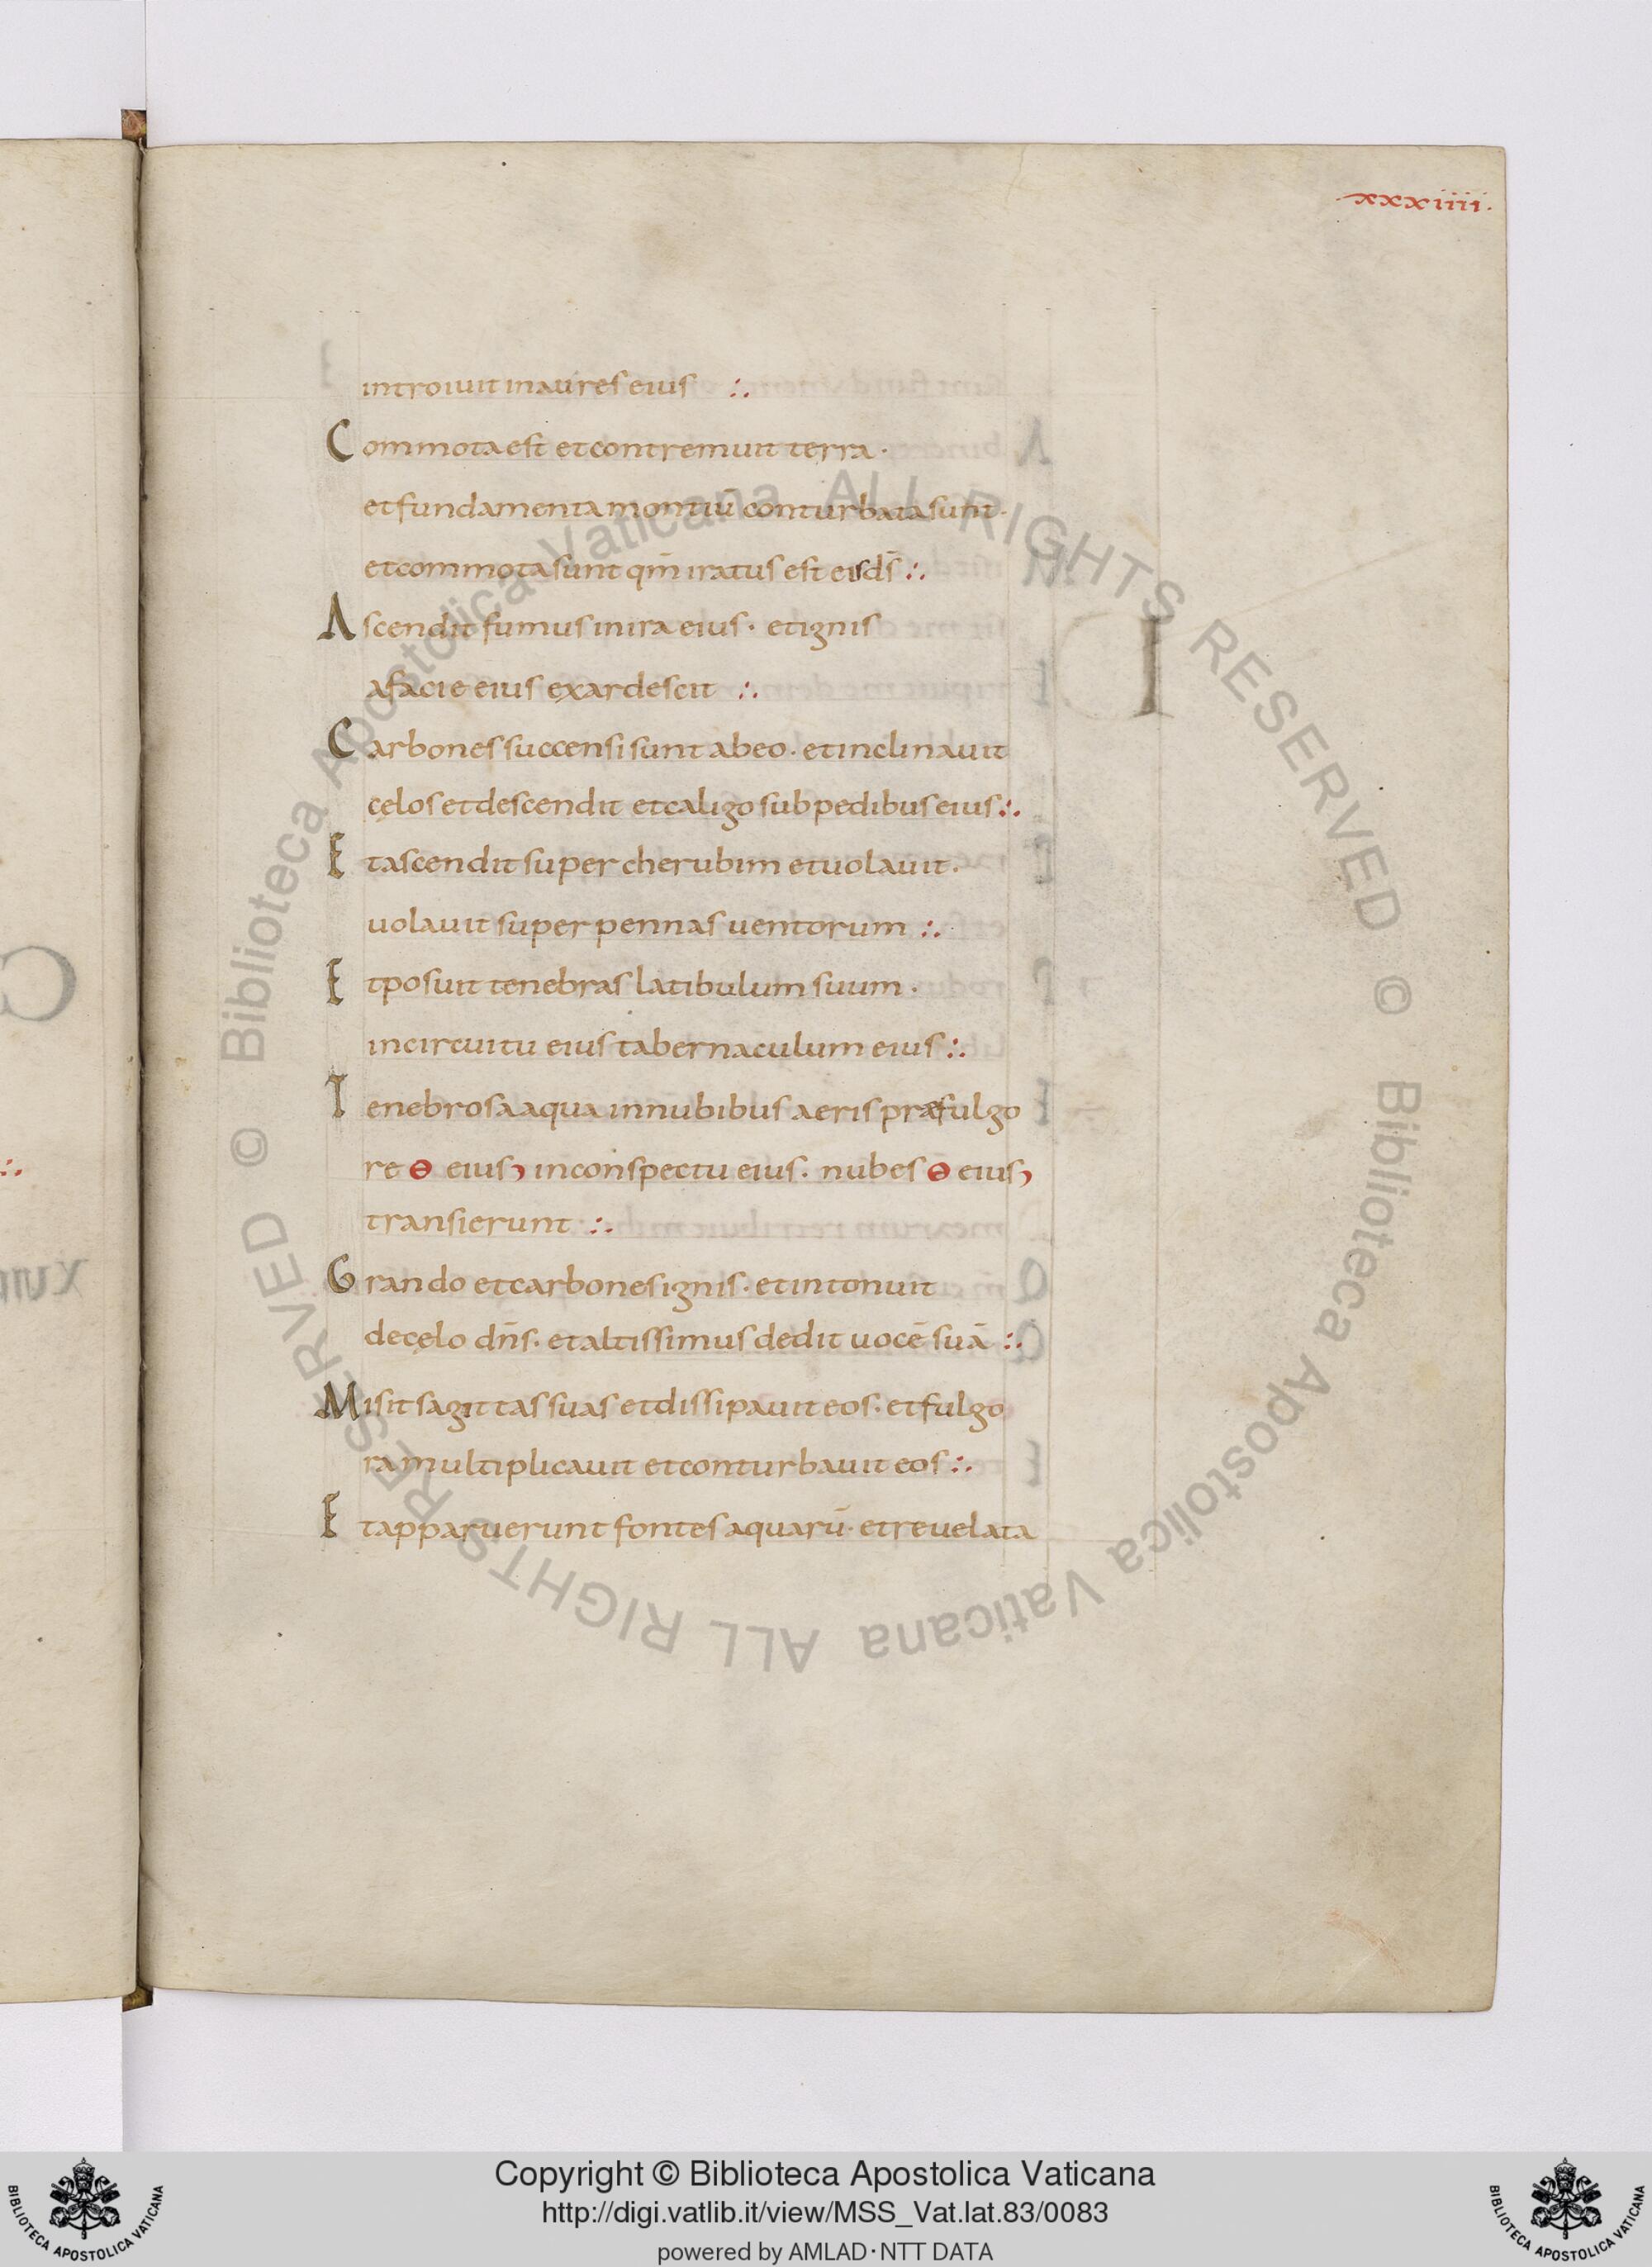 xxxiiii.
introiuit in aures eius :.
Commota est et contremuit terra.
et fundamenta montiū conturbata sunt.
et commota sunt qm̄ iratus est eis ds̄ :.
Ascendit fumus in ira eius. et ignis
a facie eius exardescit :.
Carbones succensi sunt ab eo. et inclinauit
cęlos et descendit et caligo sub pedibus eius :.
Et ascendit super cherubim et uolauit.
uolauit super pennas uentorum :.
Et posuit tenebras latibulum suum.
in circuitu eius tabernaculum eius :.
Tenebrosa aqua in nubibus aeris præfulgo
re ɵ eius, in conspectu eius. nubes ɵ eius,
transierunt :.
Grando et carbones ignis. et intonuit
de cęlo dn̄s. et altissimus dedit uocē suā :.
Misit sagittas suas et dissipauit eos. et fulgo
ra multiplicauit et conturbauit eos :.
Et apparuerunt fontes aquarū. et reuelata
© Biblioteca Apostolica Vaticana ALL RIGHTS RESERVED © Biblioteca Apostolica Vaticana ALL RIGHTS RESERVED
Copyright © Biblioteca Apostolica Vaticana
http://digi.vatlib.it/view/MSS_Vat.lat.83/0083
powered by AMLAD·NTT DATA
BIBLIOTECA APOSTOLICA VATICANA
BIBLIOTECA APOSTOLICA VATICANA